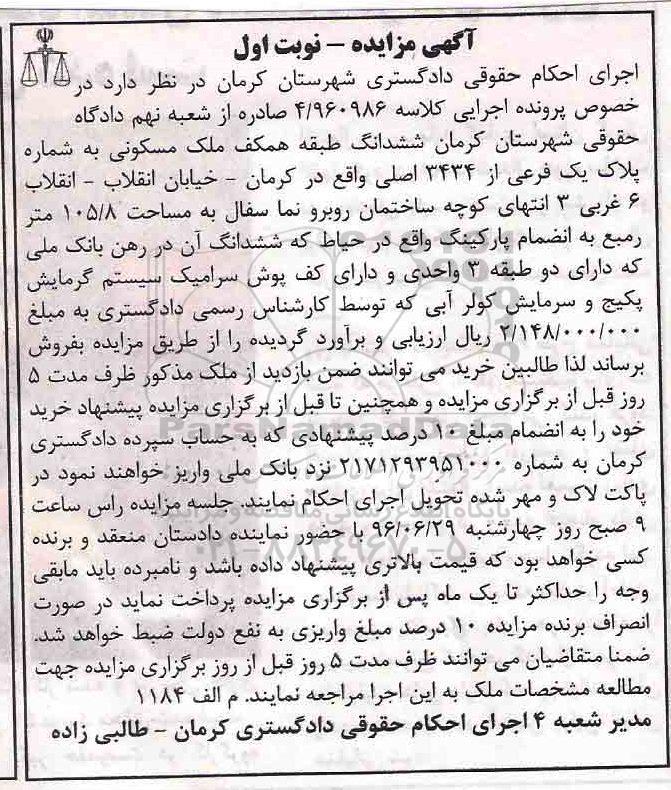 آگهی مزایده – نوبت اول
اجرای احکام حقوقی دادگستری شهرستان کرمان در نظر دارد در
خصوص پرونده اجرایی کلاسه ۴/۹۶۰۹۸۶ صادره از شعبه نهم دادگاه
حقوقی شهرستان کرمان ششدانگ طبقه همکف ملک مسکونی به شماره
پلاک یک فرعی از ۳۴۳۴ اصلی واقع در کرمان – خیابان انقلاب – انقلاب
۶ غربی ۳ انتهای کوچه ساختمان روبرو نما سفال به مساحت ۱۰۵/۸ متر
رمبع به انضمام پارکینگ واقع در حیاط که ششدانگ آن در رهن بانک ملی
که دارای دو طبقه ۳ واحدی و دارای کف پوش سرامیک سیستم گرمایش
پکیج و سرمایش کولر آبی که توسط کارشناس رسمی دادگستری به مبلغ
۲/۱۴۸/۰۰۰/۰۰۰ ریال ارزیابی و برآورد گردیده را از طریق مزایده بفروش
برساند لذا طالبین خرید می توانند ضمن بازدید از ملک مذکور ظرف مدت ۵
روز قبل از برگزاری مزایده و همچنین تا قبل از برگزاری مزایده پیشنهاد خرید
خود را به انضمام مبلغ ۱۰ درصد پیشنهادی که به حساب سپرده دادگستری
کرمان به شماره ۲۱۷۱۲۹۳۹۵۱۰۰۰ نزد بانک ملی واریز خواهند نمود در
پاکت لاک و مهر شده تحویل اجرای احکام نمایند. جلسه مزایده راس ساعت
۹ صبح روز چهارشنبه ۹۶/۰۶/۲۹ با حضور نماینده دادستان منعقد و برنده
کسی خواهد بود که قیمت بالاتری پیشنهاد داده باشد و نامبرده باید مابقی
وجه را حداکثر تا یک ماه پس از برگزاری مزایده پرداخت نماید در صورت
انصراف برنده مزایده ۱۰ درصد مبلغ واریزی به نفع دولت ضبط خواهد شد.
ضمنا متقاضیان می توانند ظرف مدت ۵ روز قبل از روز برگزاری مزایده جهت
مطالعه مشخصات ملک به این اجرا مراجعه نمایند. م الف ۱۱۸۴
مدیر شعبه ۴ اجرای احکام حقوقی دادگستری کرمان – طالبی زاده
ParsNamadData